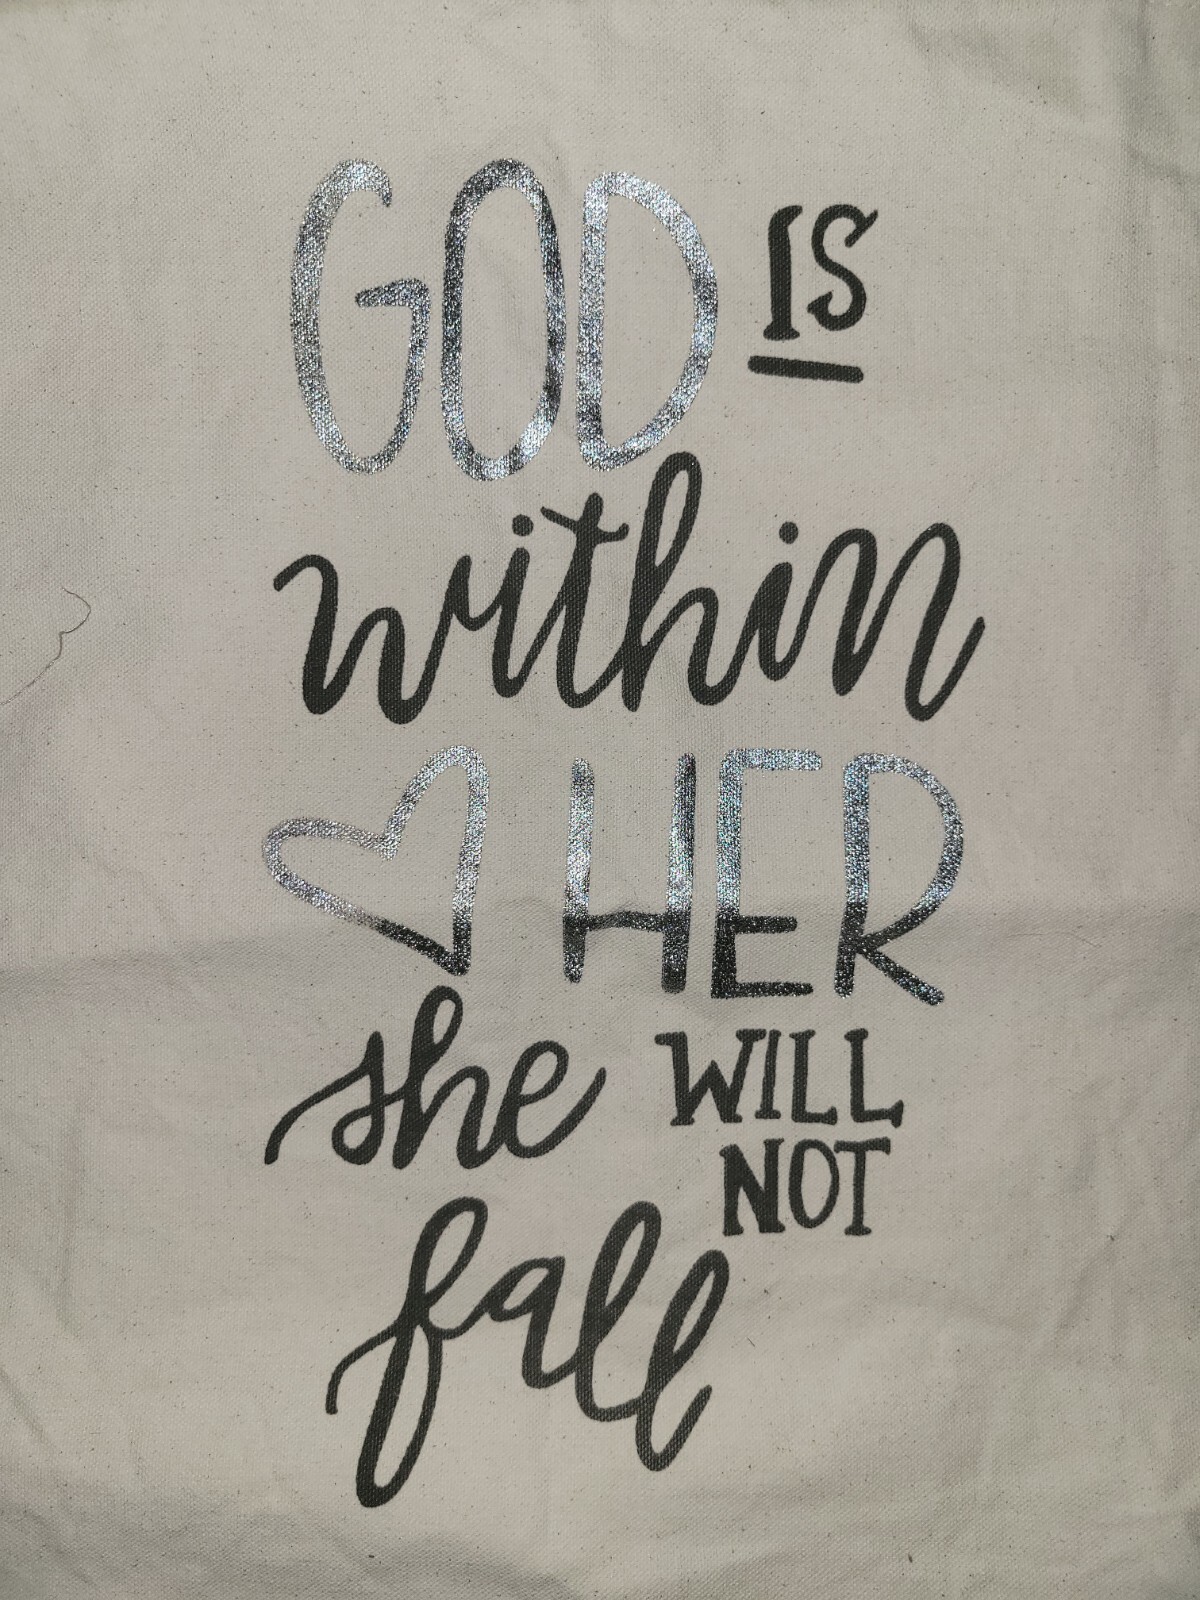 GOD IS
within
HER
she WILL
NOT
fall